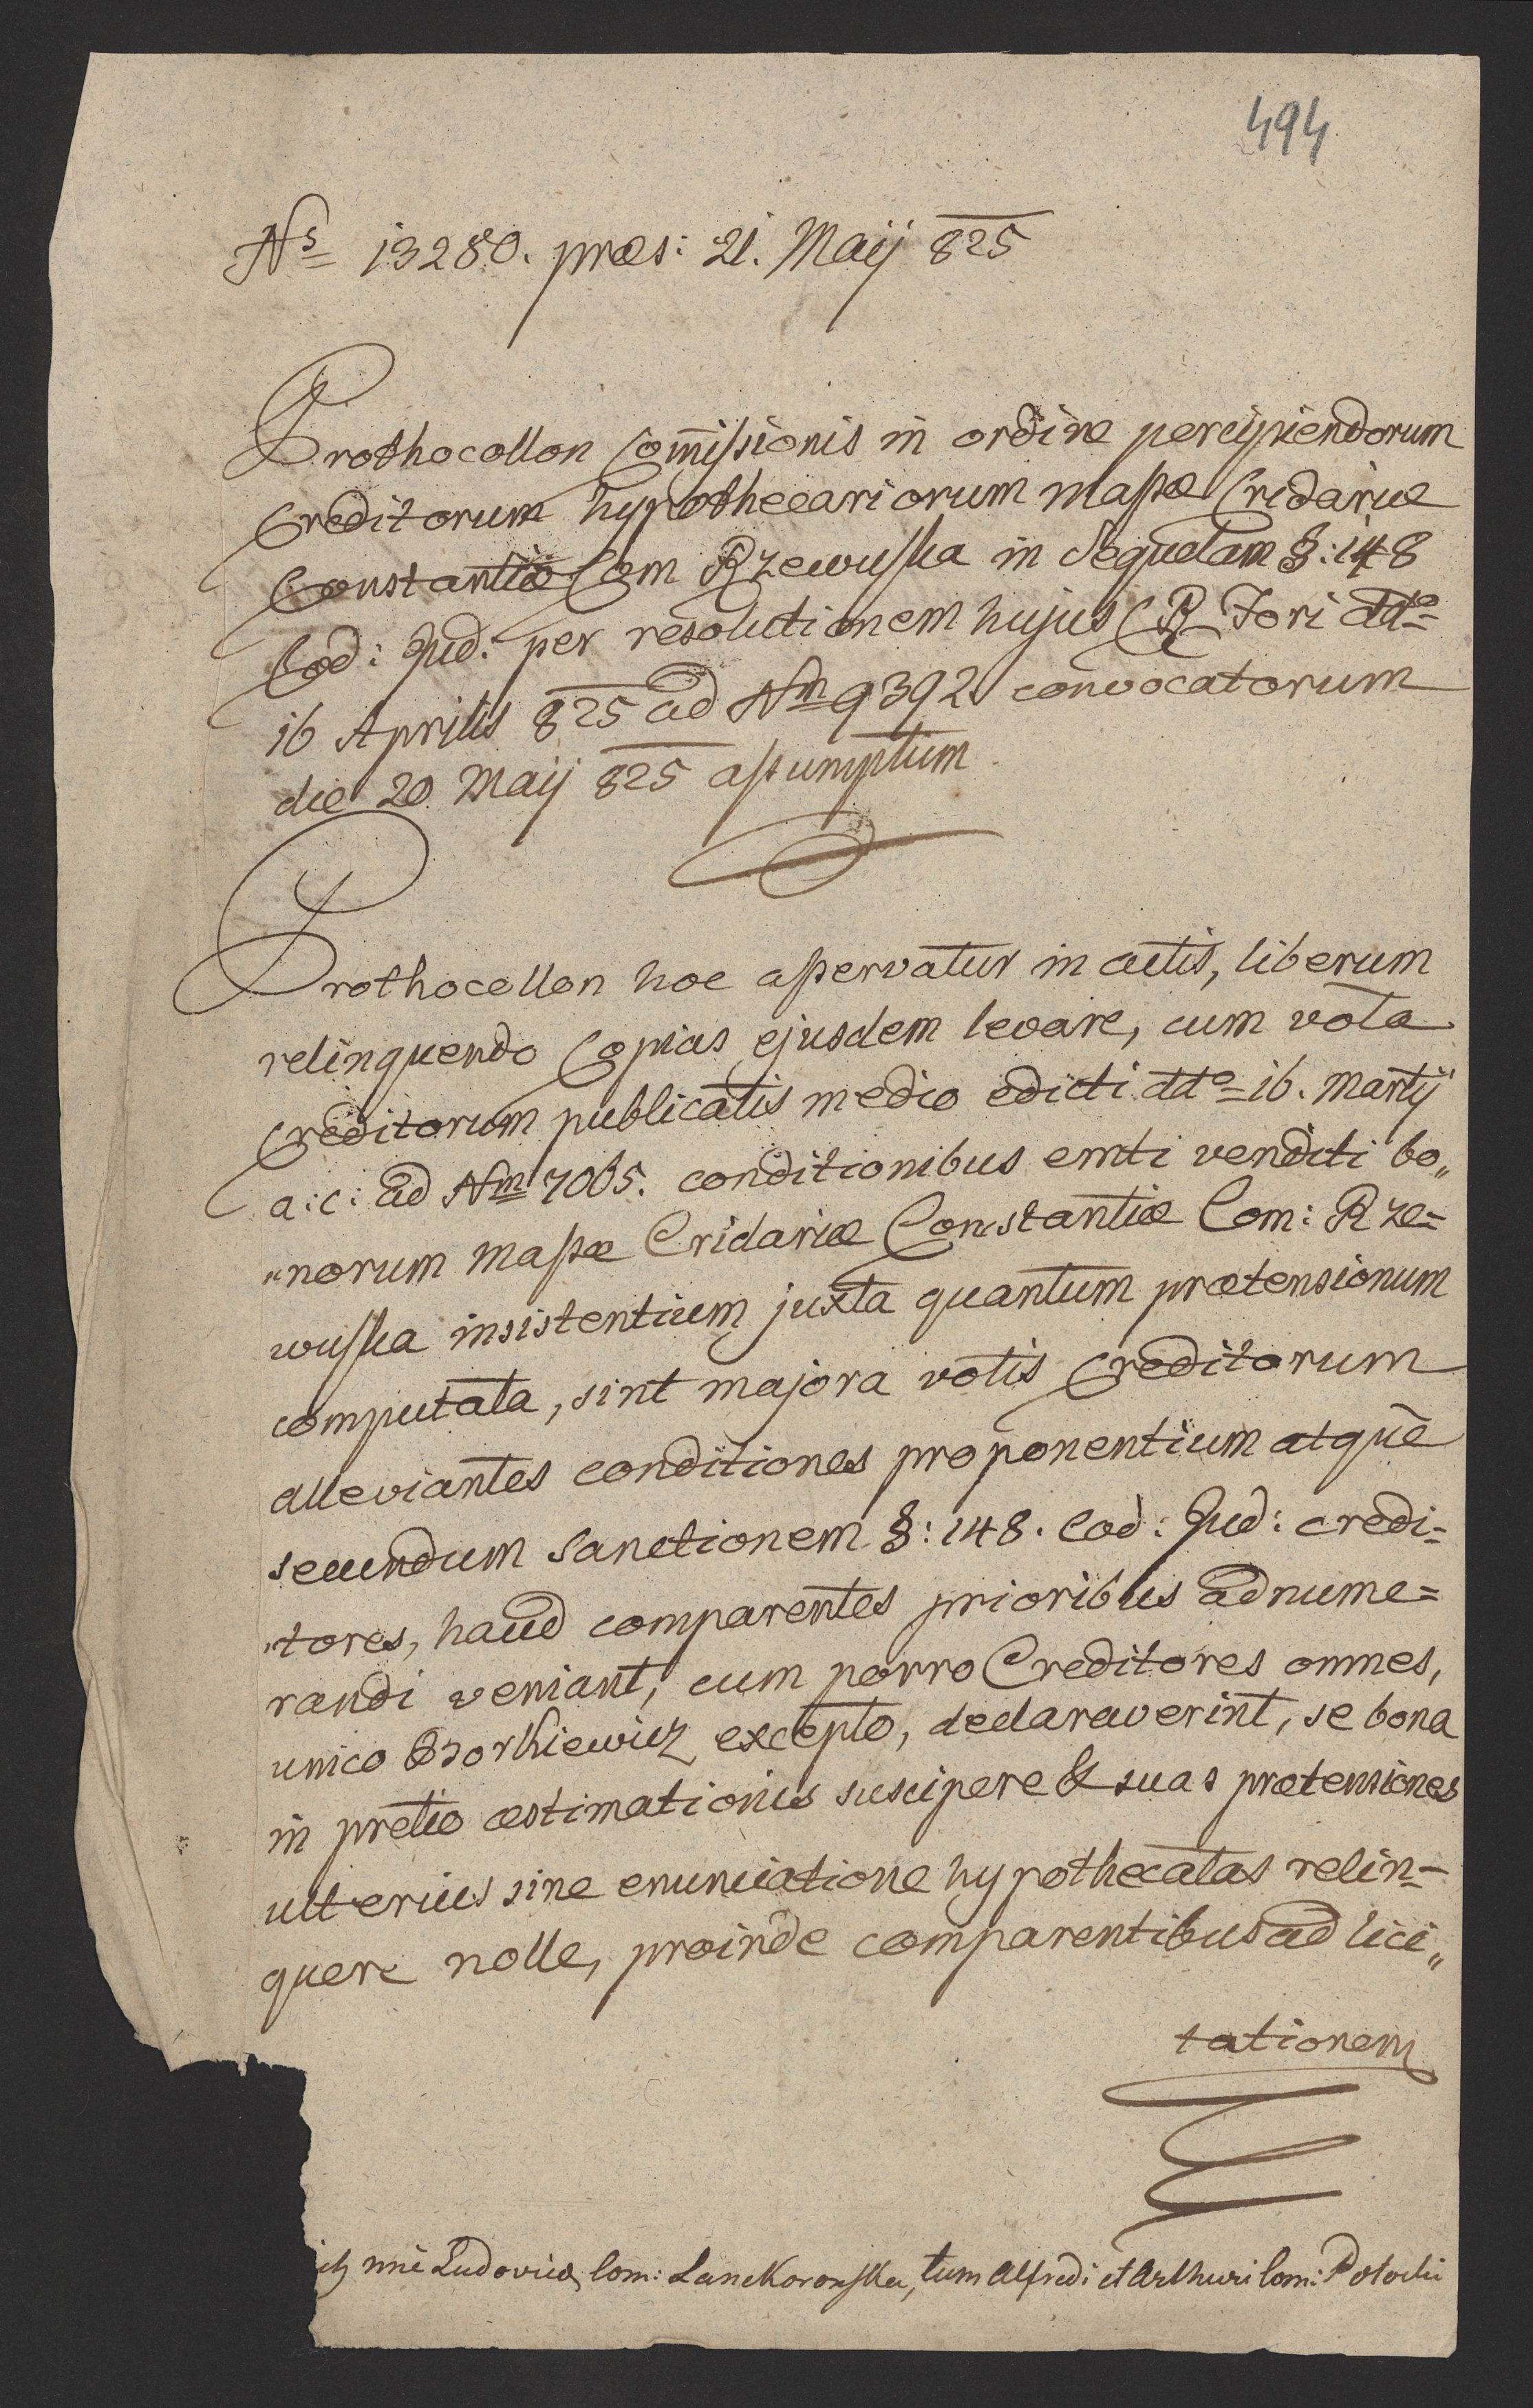 494
Ns 13280. præs: 21. Maij 825
Prothocollon Com̅issionis in ordine percipiendorum
Creditorum hypothecariorum massæ Cridariæ
Constantiæ Com Rzewuska in Sequelam §: 148
Cod: Jud: per resolutionem hujus CR Fori ddo
16 Aprilis 825 ad Nm 9392 convocatorum
die 20 Maij 825 assumptum.
Prothocollon hoc asservatur in actis, liberum
relinquendo Copias ejusdem levare, cum vota
Creditorum publicatis medio edicti ddo 16. Martij
a: c: ad Nm 7065. conditionibus emti venditi bo„
„norum massæ Cridariæ Constantiæ Com: Rze=
wuska insistentium juxta quantum prætensionum
computata, sint majora votis Creditorum
alleviantes conditiones proponentium atque
secundum Sanctionem §: 148. Cod: Jud: credi=
„tores, haud comparentes prioribus adnume=
randi veniant, cum porro Creditores omnes,
unico excepto, declaraverint, se bona
in pretio æstimationis suscipere & suas prætensiones
ulterius sine enunciatione hypothecatas relin=
quere nolle, proinde comparentibus ad lici„
tationem
Ludovicæ Com: Lanckorońska, tum Alfredi et Arthuri Com: Potocki